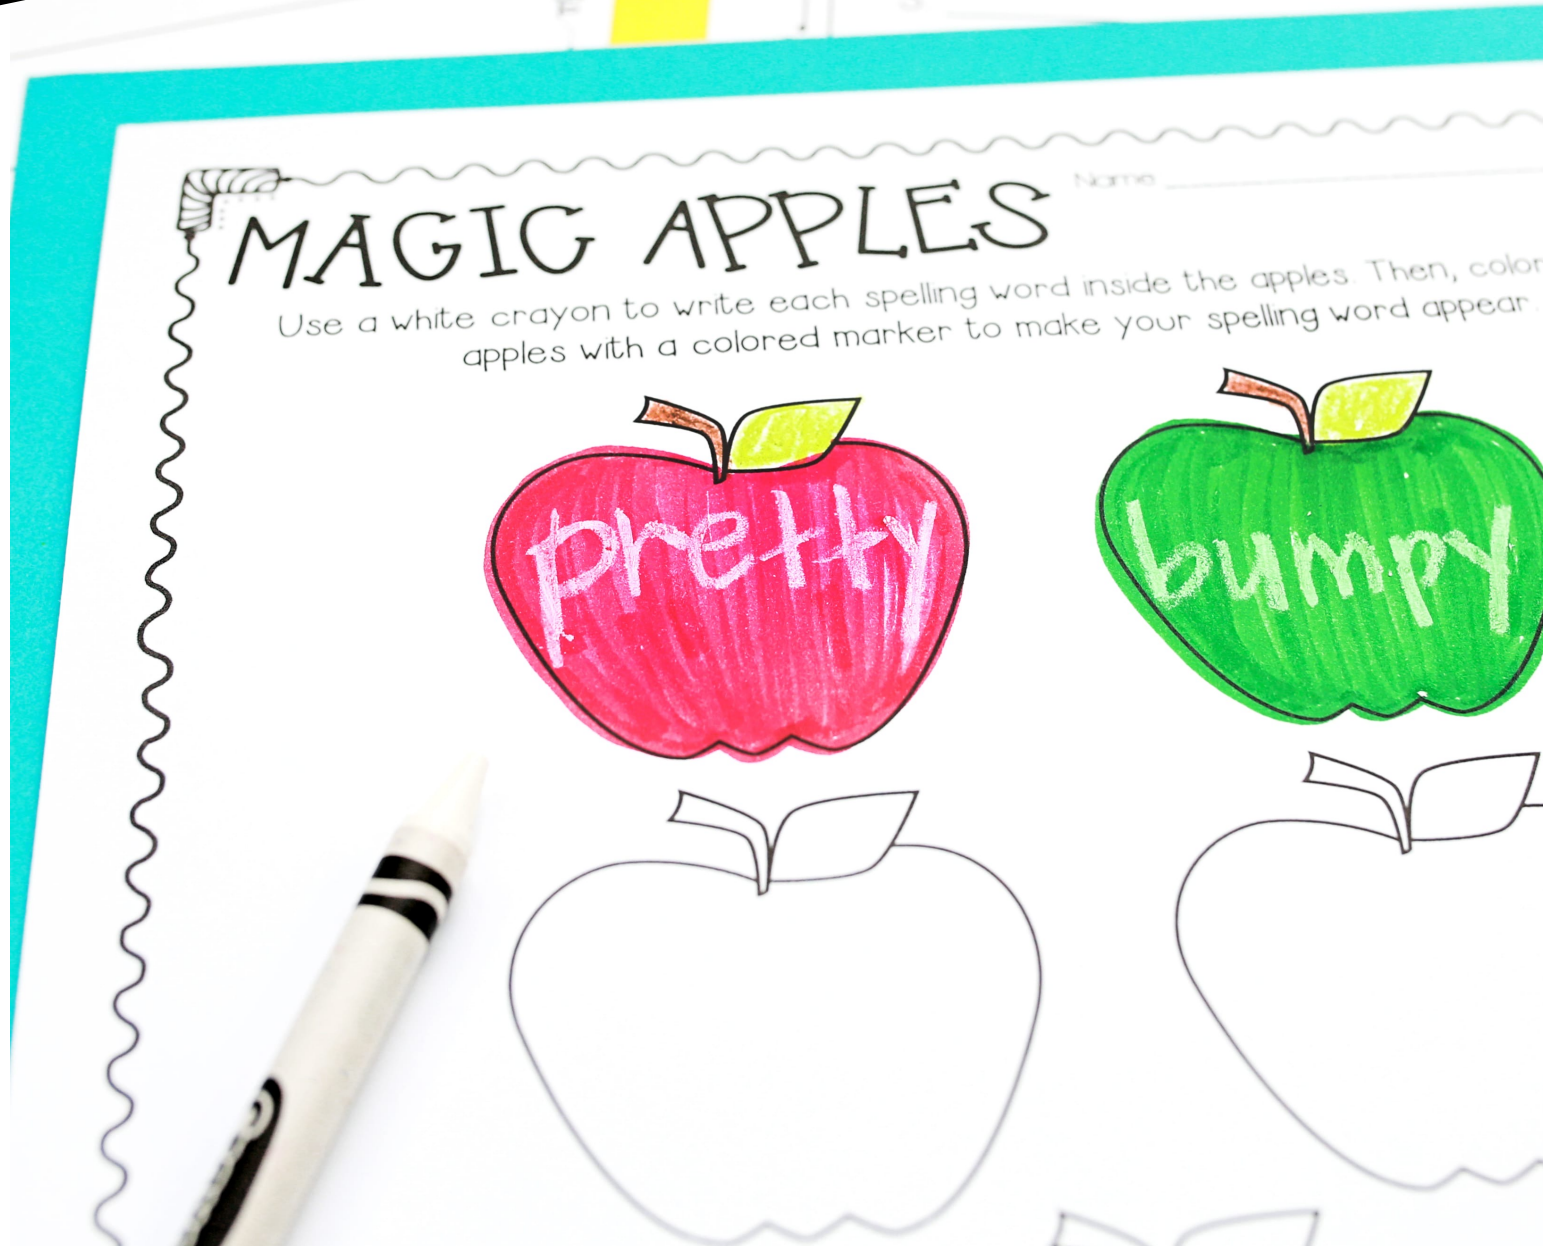 MAGIC APPLES
Name
Use a white crayon to write each spelling word inside the apples. Then, color
apples with a colored marker to make your spelling word appear.
pretty
bumpy